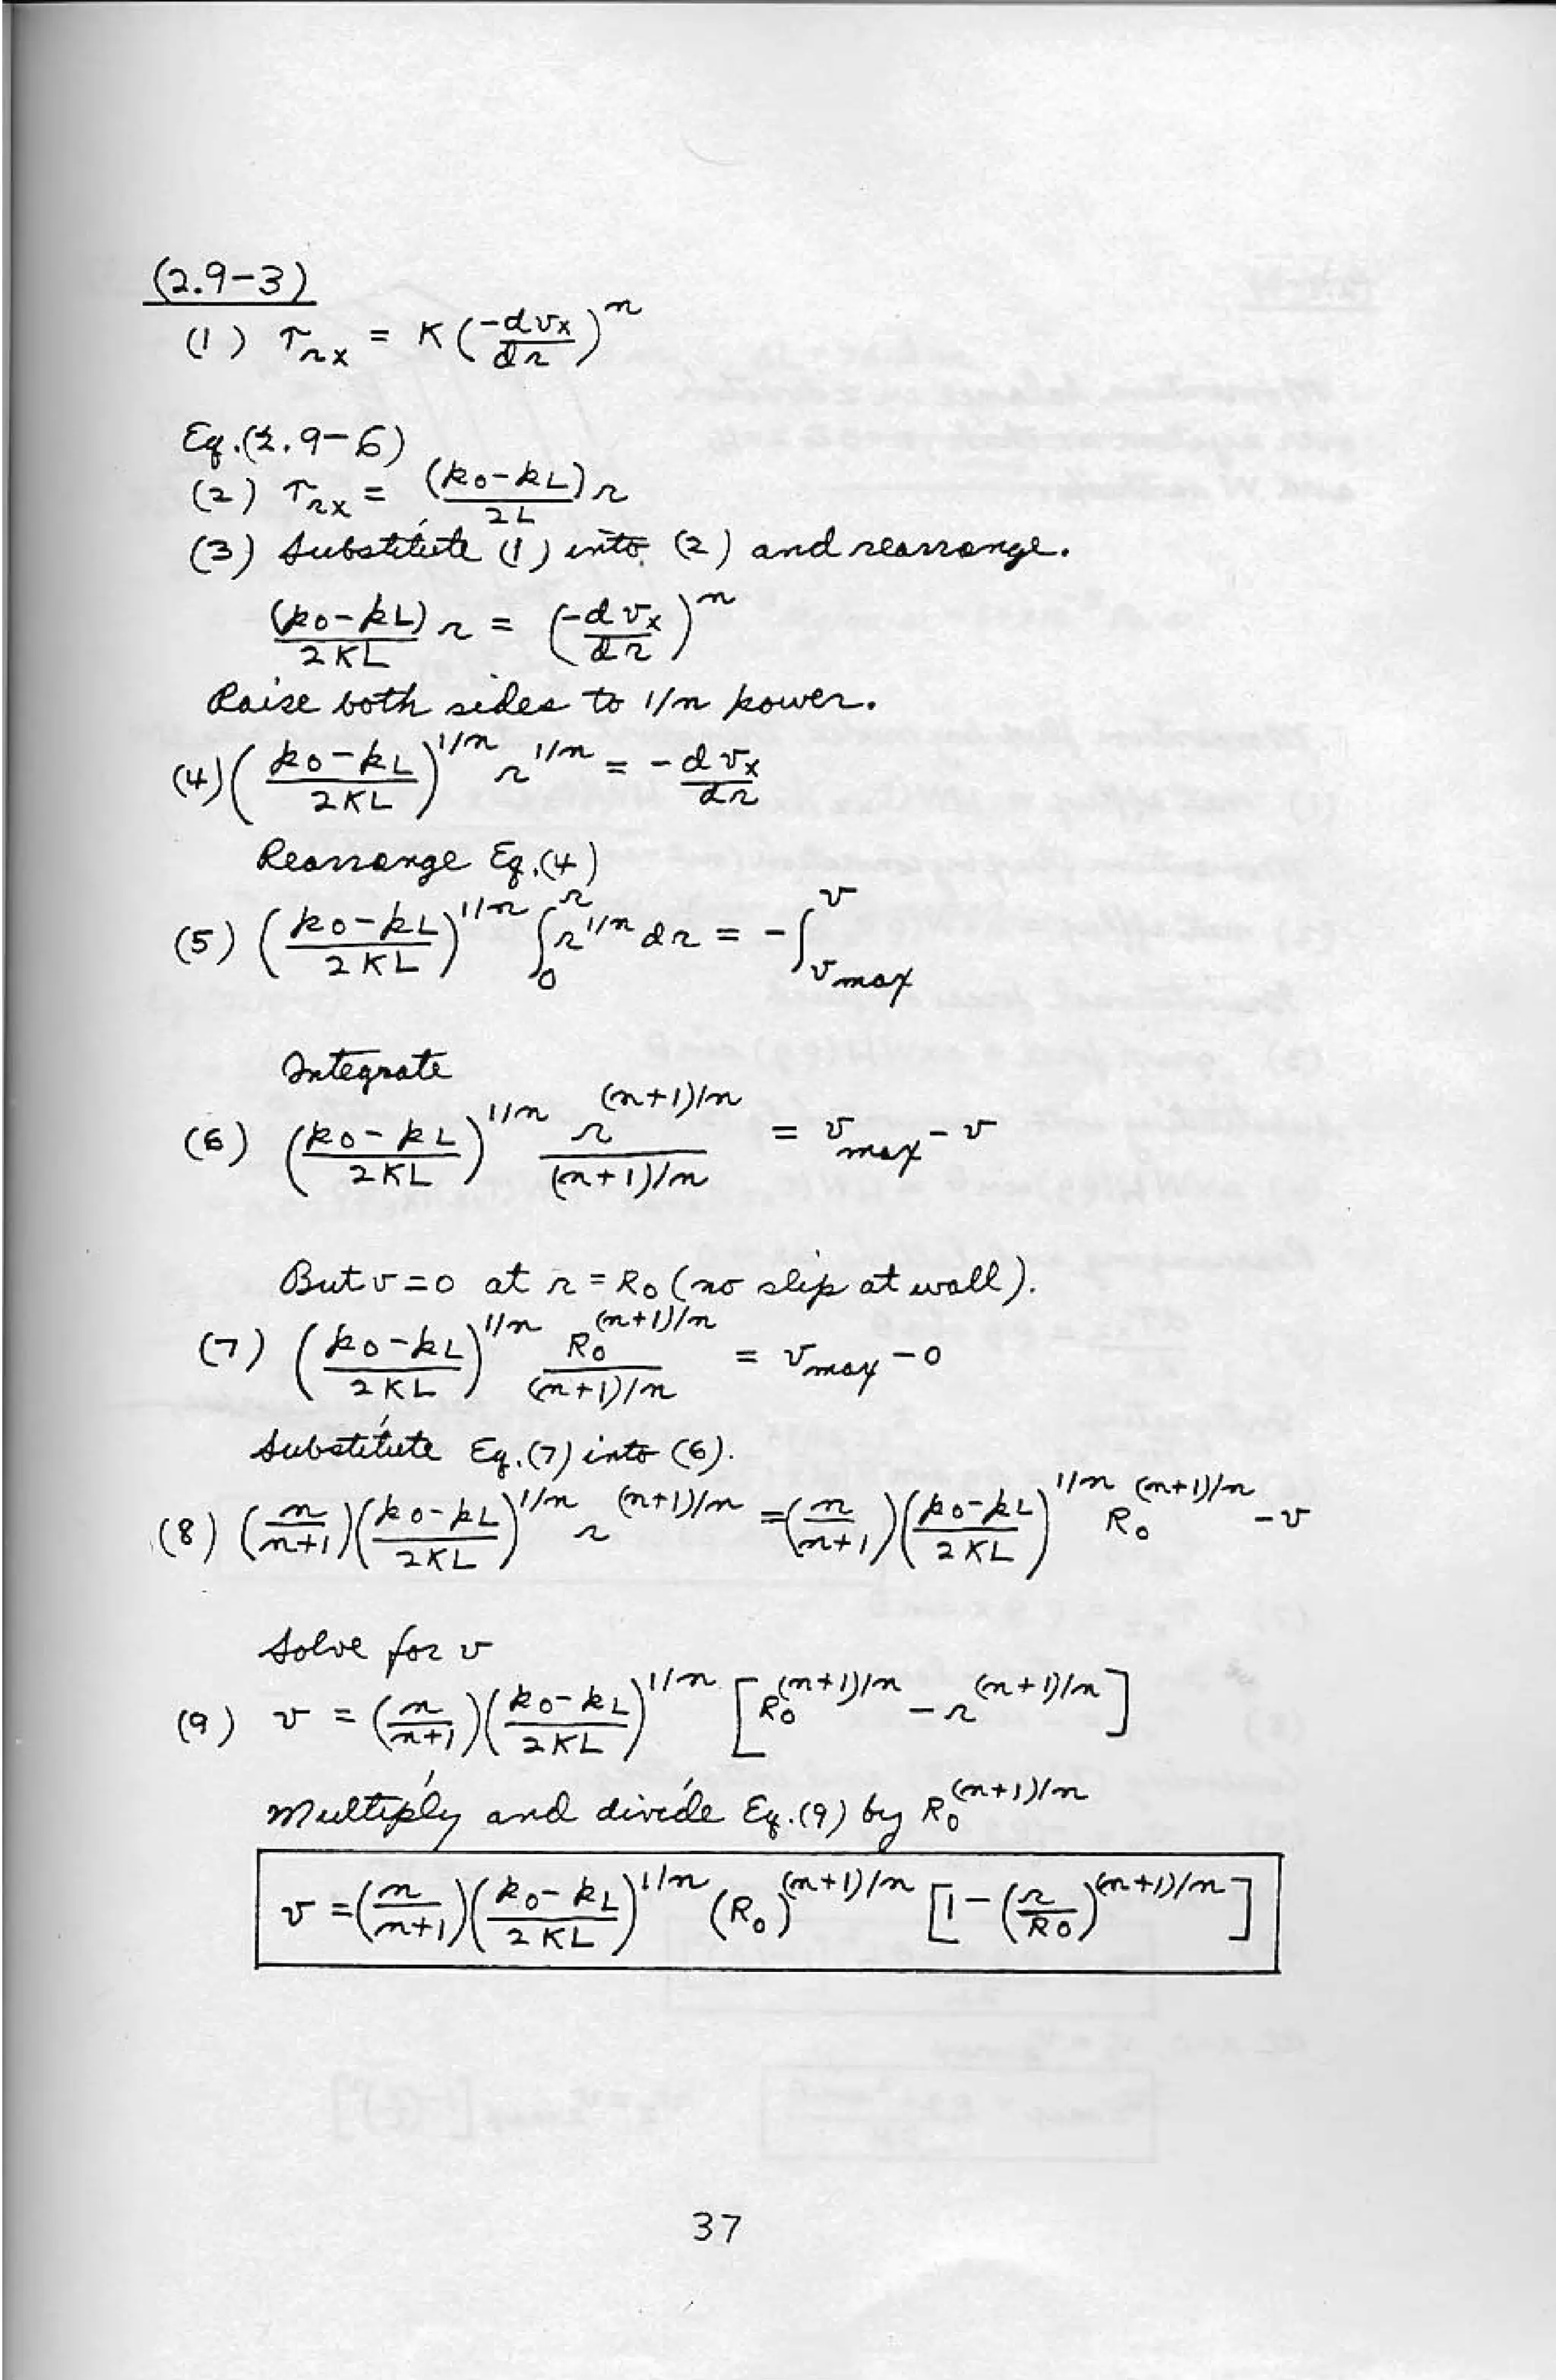 (2.9-3)
(1) τ_rx = K(-dv_x/dr)^n
Eq.(2.9-6)
(2) τ_rx = (p_0-p_L)r/2L
(3) Substitute (1) into (2) and rearrange.
(p_0-p_L)/2KL r = (-dv_x/dr)^n
Raise both sides to 1/n power.
(4) ((p_0-p_L)/2KL)^1/n r^1/n = -dv_x/dr
Rearrange Eq.(4)
(5) ((p_0-p_L)/2KL)^1/n ∫_0^r r^1/n dr = -∫_v_max^v
Integrate
(6) ((p_0-p_L)/2KL)^1/n r^(n+1)/n / (n+1)/n = v_max - v
But v=0 at r=R_0 (no slip at wall).
(7) ((p_0-p_L)/2KL)^1/n R_0^(n+1)/n / (n+1)/n = v_max - 0
Substitute Eq.(7) into (6).
(8) (n/n+1)((p_0-p_L)/2KL)^1/n r^(n+1)/n = (n/n+1)((p_0-p_L)/2KL)^1/n R_0^(n+1)/n - v
Solve for v
(9) v = (n/n+1)((p_0-p_L)/2KL)^1/n [R_0^(n+1)/n - r^(n+1)/n]
Multiply and divide Eq.(9) by R_0^(n+1)/n
v = (n/n+1)((p_0-p_L)/2KL)^1/n (R_0)^(n+1)/n [1-(r/R_0)^(n+1)/n]
37